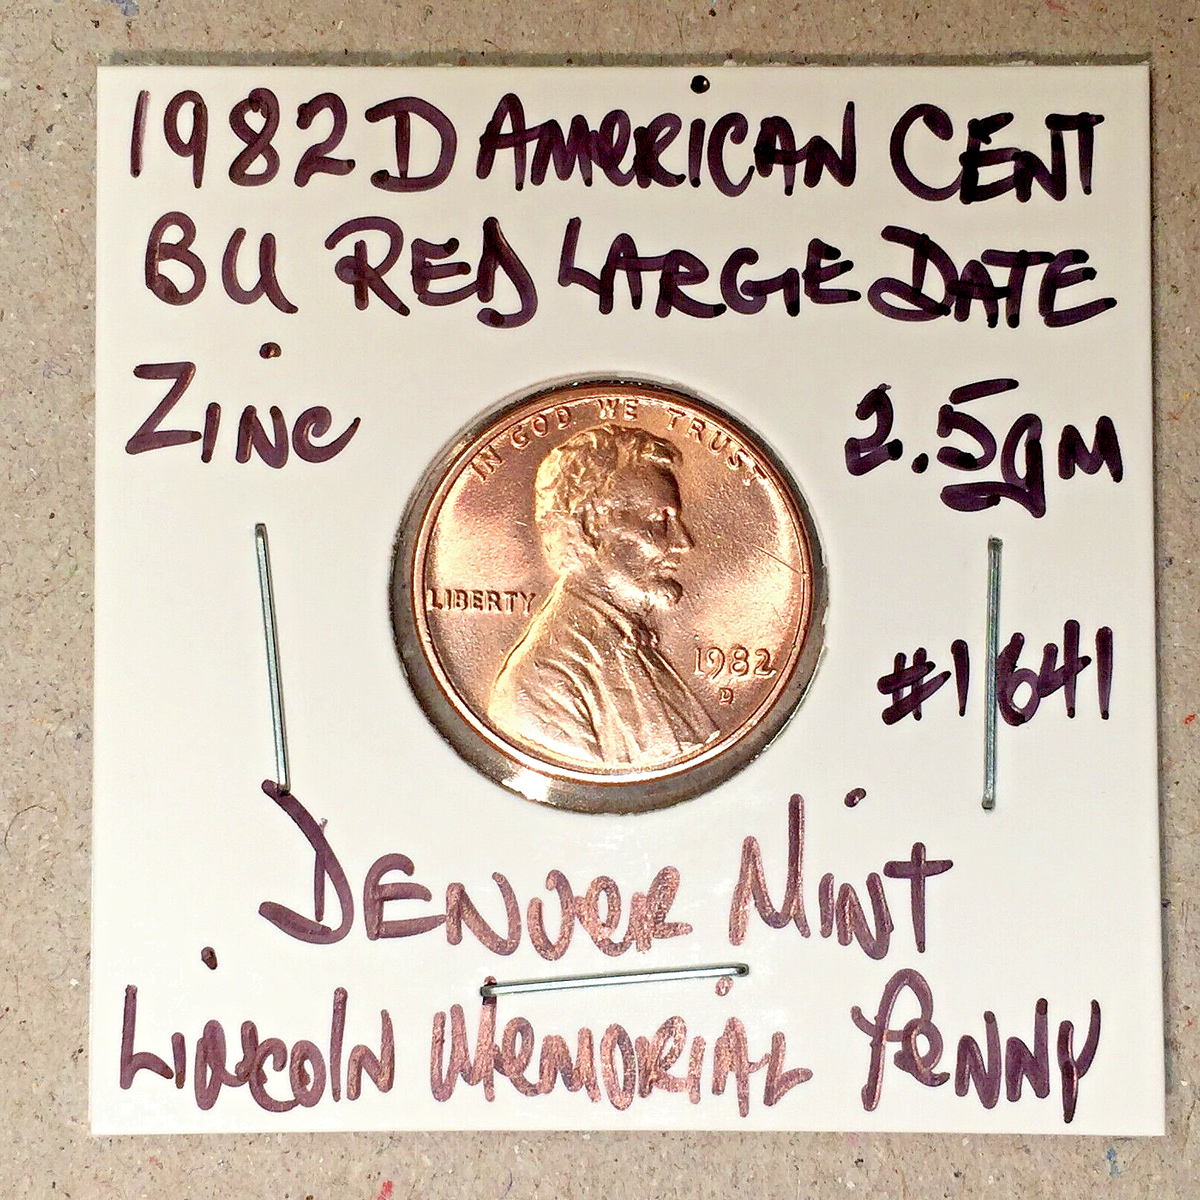 1982 D AMERICAN CENT
BU RED LARGE DATE
ZINC
2.5gM
IN GOD WE TRUST
LIBERTY
1982
D
#1641
DENVER MINT
LINCOLN MEMORIAL PENNY